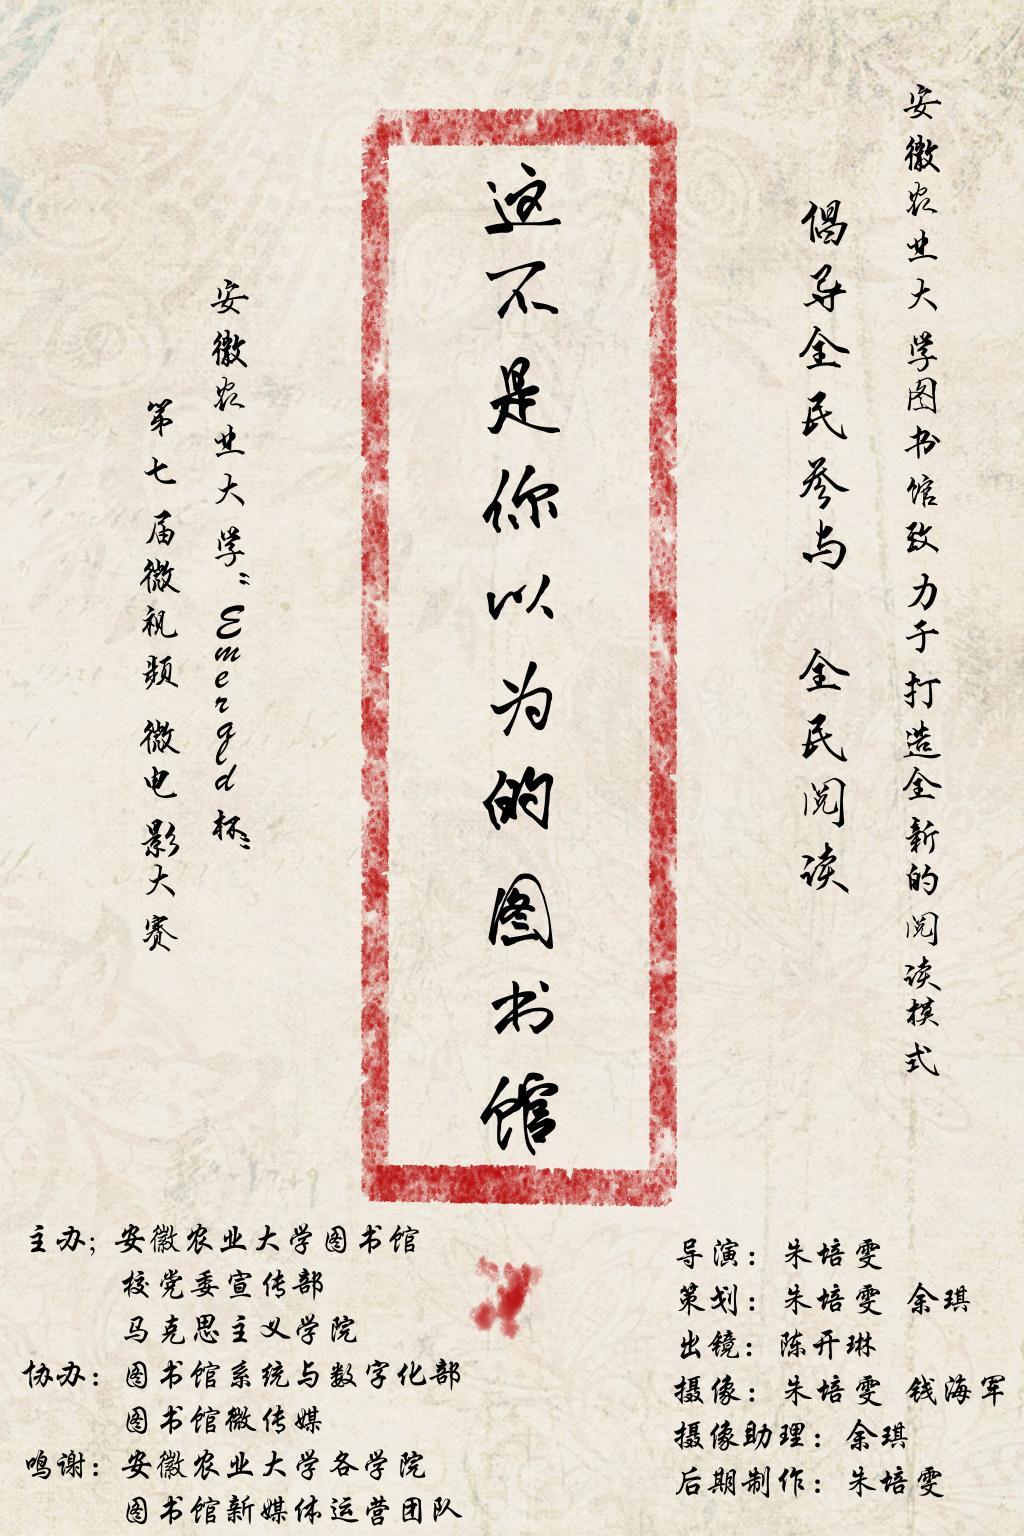 安徽农业大学图书馆致力于打造全新的阅读模式
倡导全民参与 全民阅读
这不是你以为的图书馆
安徽农业大学“Emerald杯”
第七届微视频 微电影大赛
主办：安徽农业大学图书馆
校党委宣传部
马克思主义学院
协办：图书馆系统与数字化部
图书馆微传媒
鸣谢：安徽农业大学各学院
图书馆新媒体运营团队
导演：朱培雯
策划：朱培雯 余琪
出镜：陈开琳
摄像：朱培雯 钱海军
摄像助理：余琪
后期制作：朱培雯